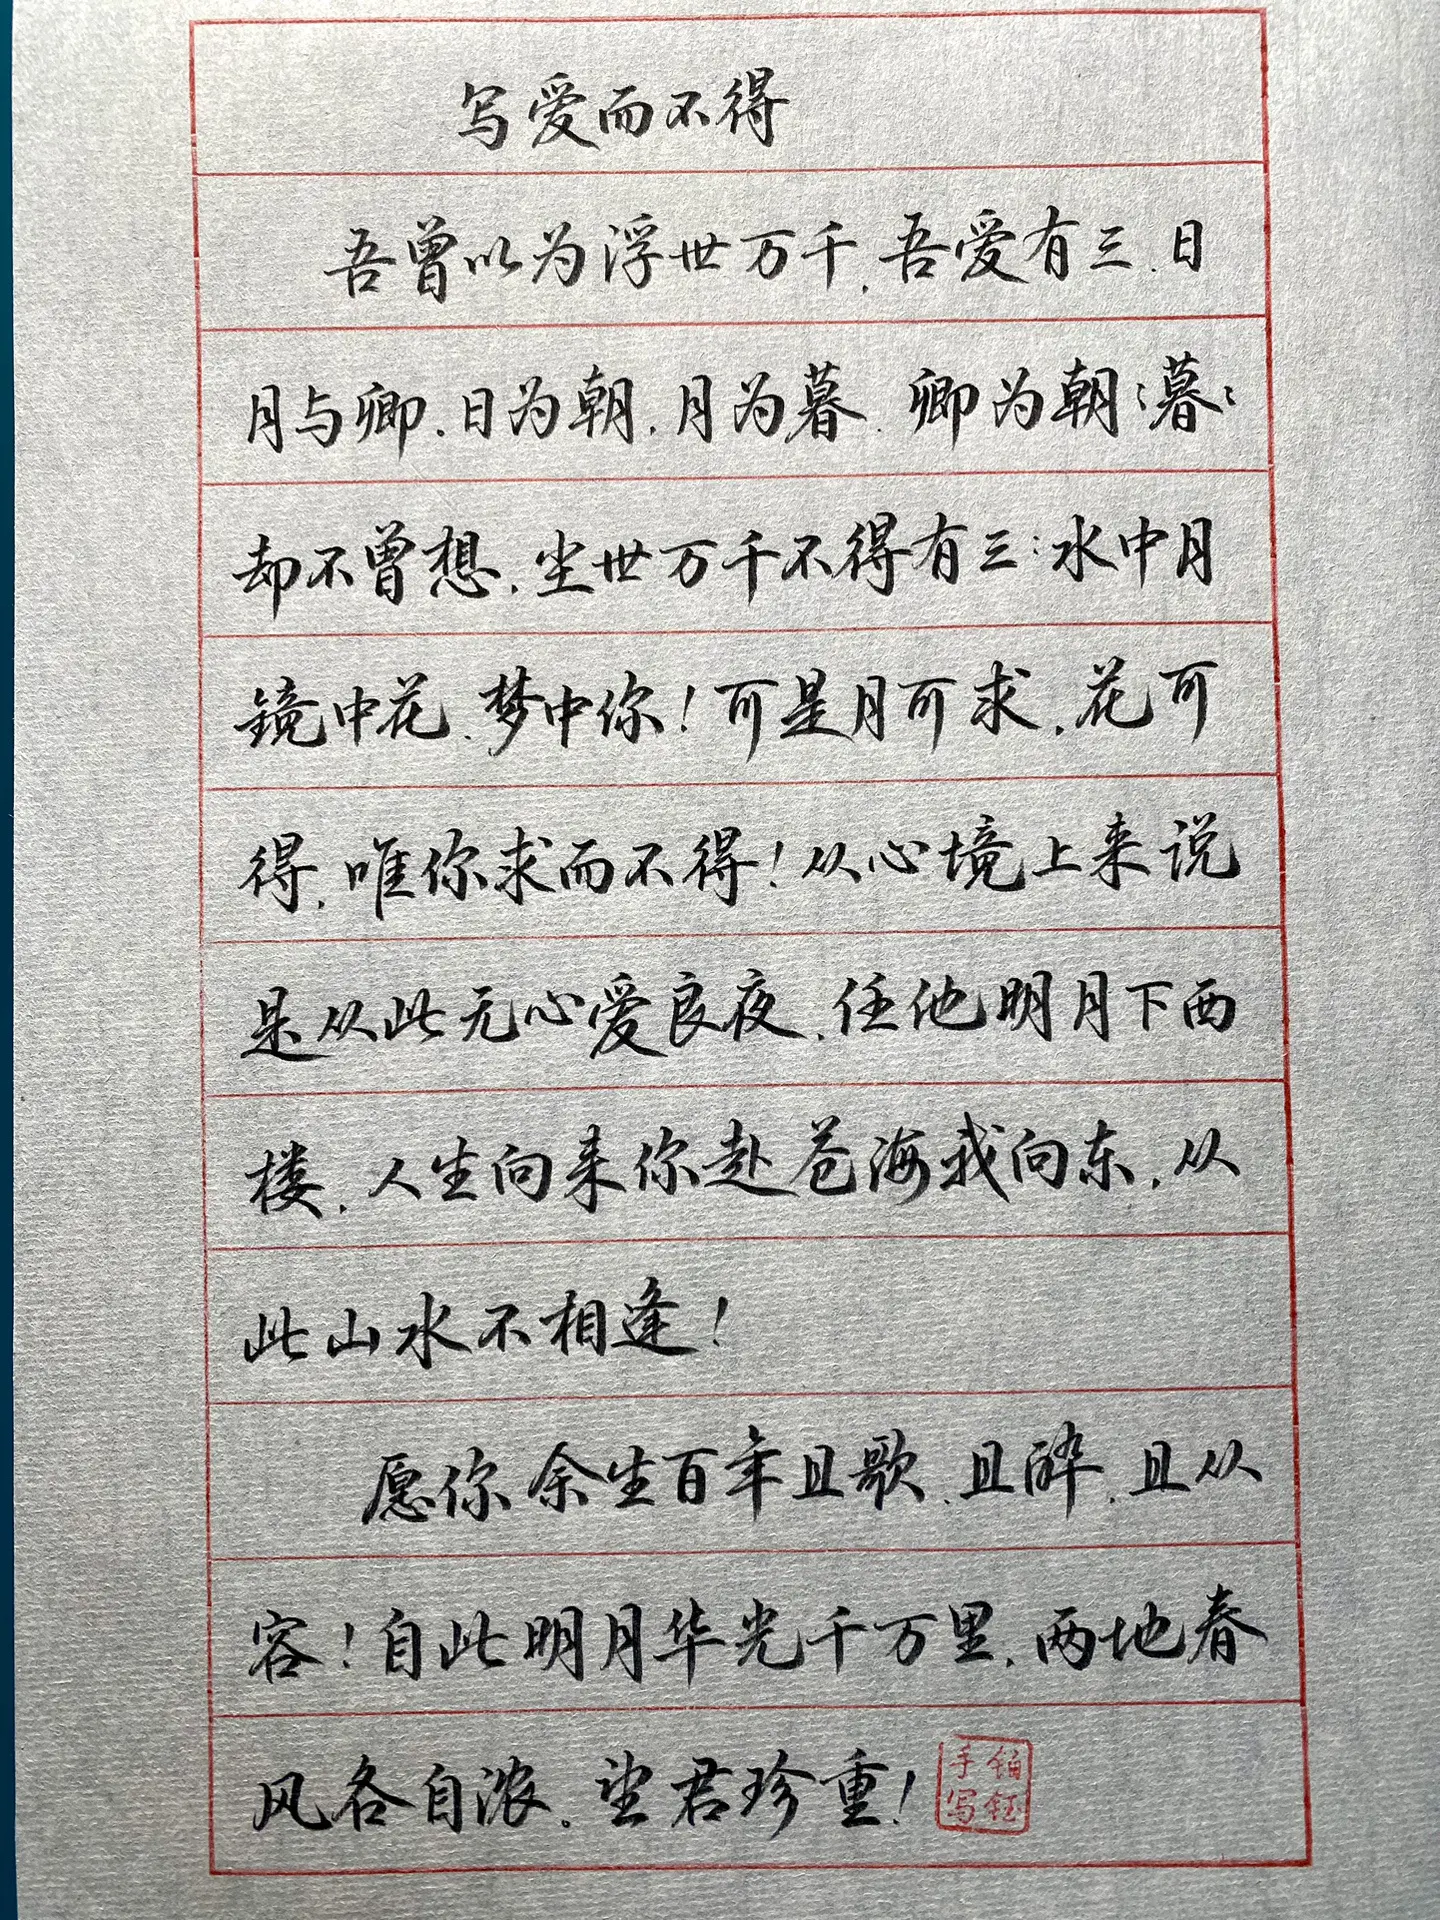 写爱而不得
吾曾以为浮世万千,吾爱有三、日
月与卿.日为朝,月为暮.卿为朝:暮:
却不曾想,尘世万千不得有三:水中月
镜中花.梦中你!可是月可求,花可
得,唯你求而不得!从心境上来说
是从此无心爱良夜,任他明月下西
楼,人生向来你赴苍海我向东,从
此山水不相逢!
愿你余生百年且歌、且醉,且从
容!自此明月华光千万里,两地春
风各自浓。望君珍重!
铂钰
手写